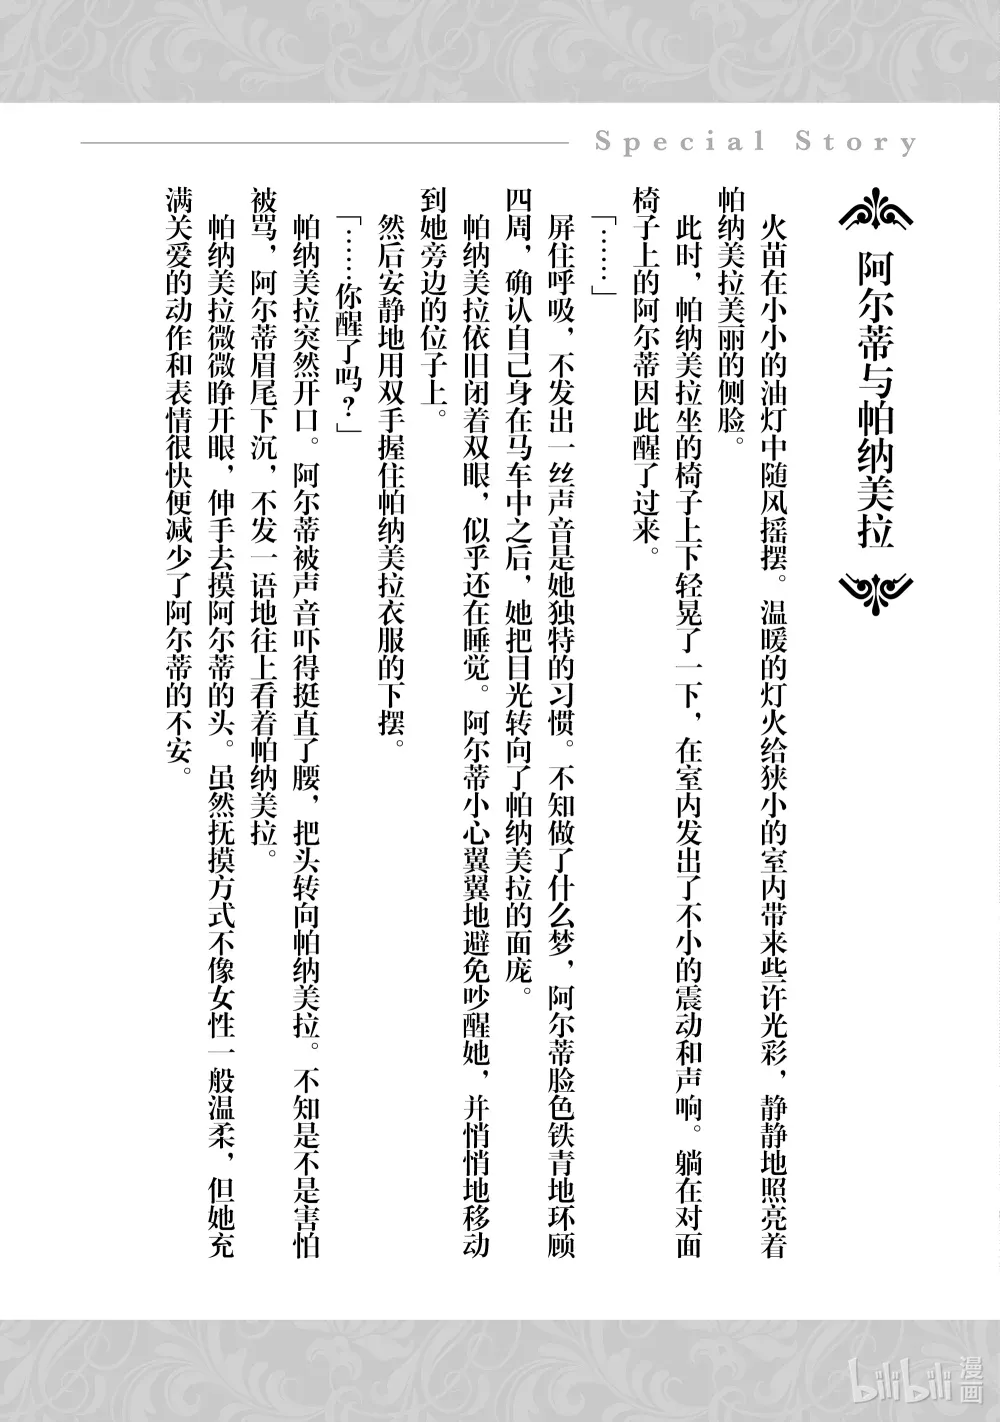 Special Story
阿尔蒂与帕纳美拉
火苗在小小的油灯中随风摇摆。温暖的灯火给狭小的室内带来些许光彩，静静地照亮着
帕纳美拉美丽的侧脸。
此时，帕纳美拉坐的椅子上下轻晃了一下，在室内发出了不小的震动和声响。躺在对面
椅子上的阿尔蒂因此醒了过来。
「……」
屏住呼吸，不发出一丝声音是她独特的习惯。不知做了什么梦，阿尔蒂脸色铁青地环顾
四周，确认自己身在马车中之后，她把目光转向了帕纳美拉的面庞。
帕纳美拉依旧闭着双眼，似乎还在睡觉。阿尔蒂小心翼翼地避免吵醒她，并悄悄地移动
到她旁边的位子上。
然后安静地用双手握住帕纳美拉衣服的下摆。
「……你醒了吗？」
帕纳美拉突然开口。阿尔蒂被声音吓得挺直了腰，把头转向帕纳美拉。不知是不是害怕
被骂，阿尔蒂眉尾下沉，不发一语地往上看着帕纳美拉。
帕纳美拉微微睁开眼，伸手去摸阿尔蒂的头。虽然抚摸方式不像女性一般温柔，但她充
满关爱的动作和表情很快便减少了阿尔蒂的不安。
bilibili 漫画